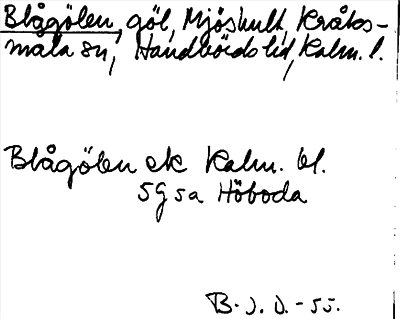 Blågölen, göl, Mjöshult, Kråks-
måla sn, Handbörds hd, Kalm. l.
Blågölen ek Kalm. bl.
5G5a Höboda
B.J.D. -55.